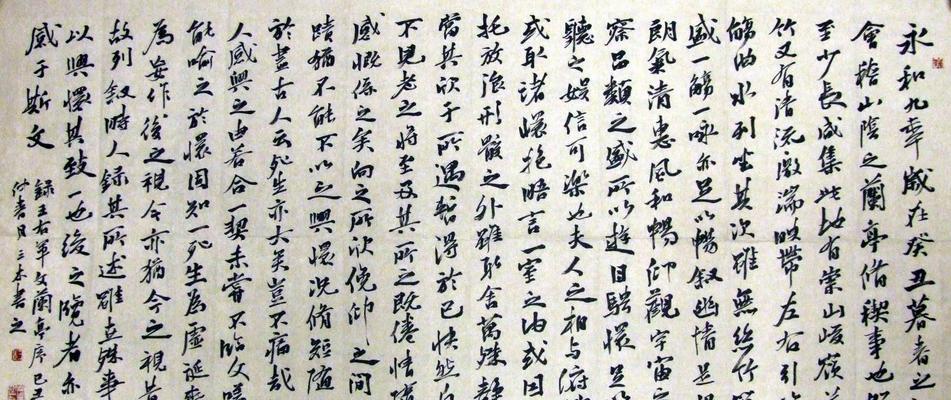 永和九年歲在癸丑暮春之
會稽山陰之蘭亭脩禊事也
至少長咸集此地有崇山峻嶺
竹又有清流激湍映帶左右引
觴曲水列坐其次雖無絲竹
盛一觴一詠亦足以暢敘幽情是
朗氣清惠風和暢仰觀宇宙之
察品類之盛所以遊目騁懷足
聽之娛信可樂也夫人之相與俯
或取諸懷抱晤言一室之內或因
托放浪形骸之外雖取舍萬殊靜
當其欣于所遇暫得於己快然自
不知老之將至及其所之既倦情隨
感慨係之矣向之所欣俛仰之間
蹟猶不能不以之興懷況脩短隨
於盡古人云死生亦大矣豈不痛哉
人感興之由若合一契未嘗不臨文嗟
能喻之於懷固知一死生為虛誕齊
為妄作後之視今亦猶今之視昔
故列敘時人錄其所述雖世殊事
以興懷其致一也後之覽者亦
感于斯文
錄王右軍文蘭亭序己丑
仲春月三本書之